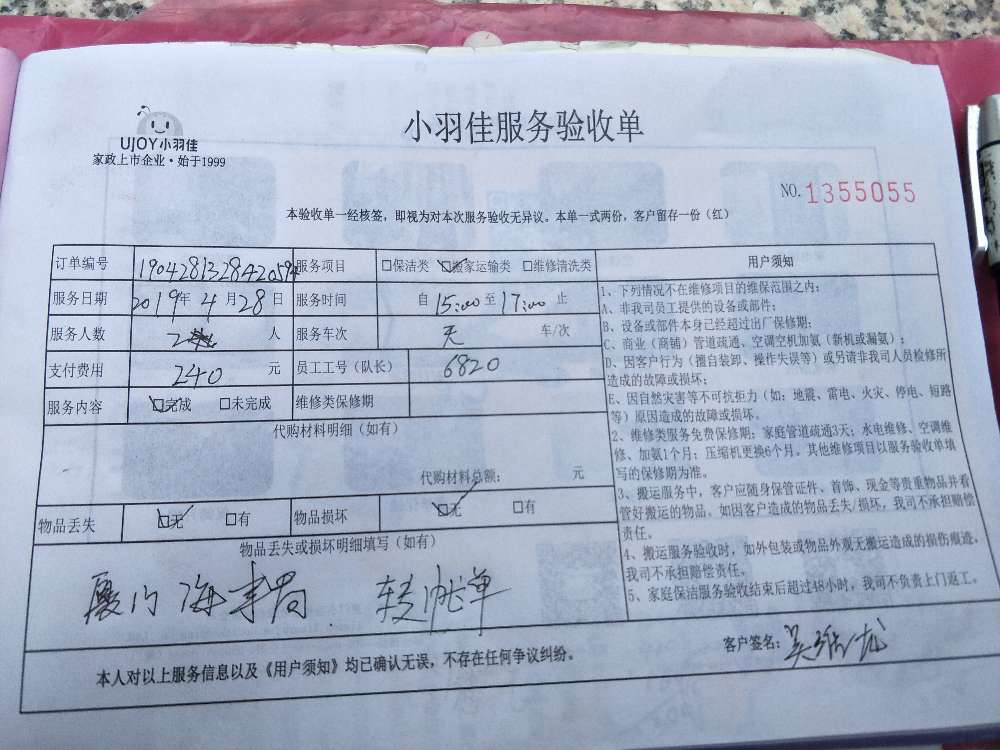 UJOY小羽佳
家政上市企业·始于1999
小羽佳服务验收单
NO.1355055
本验收单一经核签，即视为对本次服务验收无异议。本单一式两份，客户留存一份（红）
订单编号 190428132842059 服务项目 □保洁类 □搬家运输类 □维修清洗类
服务日期 2019年4月28日 服务时间 自15:00至17:00止
服务人数 2 人 服务车次 无 车/次
支付费用 240 元 员工工号（队长） 6820
服务内容 □完成 □未完成 维修类保修期
代购材料明细（如有）
代购材料总额： 元
物品丢失 □无 □有 物品损坏 □无 □有
物品丢失或损坏明细填写（如有）
厦门海事局 转账单
用户须知
1、下列情况不在维修项目的维保范围之内：
A、非我司员工提供的设备或部件；
B、设备或部件本身已经超过出厂保修期；
C、商业（商铺）管道疏通、空调空机加氨（新机或漏氨）；
D、因客户行为（擅自装卸、操作失误等）或另请非我司人员检修所
造成的故障或损坏；
E、因自然灾害等不可抗拒力（如：地震、雷电、火灾、停电、短路
等）原因造成的故障或损坏。
2、维修类服务免费保修期：家庭管道疏通3天；水电维修、空调维
修、加氨1个月；压缩机更换6个月。其他维修项目以服务验收单填
写的保修期为准。
3、搬运服务中，客户应随身保管证件、首饰、现金等贵重物品并看
管好搬运的物品。如因客户造成的物品丢失/损坏，我司不承担赔偿
责任。
4、搬运服务验收时，如外包装或物品外观无搬运造成的损伤痕迹，
我司不承担赔偿责任。
5、家庭保洁服务验收结束后超过48小时，我司不负责上门返工。
客户签名：
本人对以上服务信息以及《用户须知》均已确认无误，不存在任何争议纠纷。